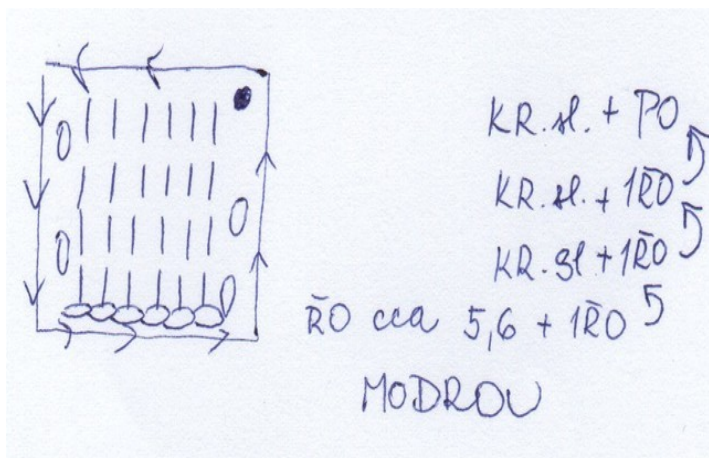 KR.sl. + PO
KR.sl. + 1ŘO
KR.sl + 1ŘO
ŘO cca 5,6 + 1ŘO
MODROU